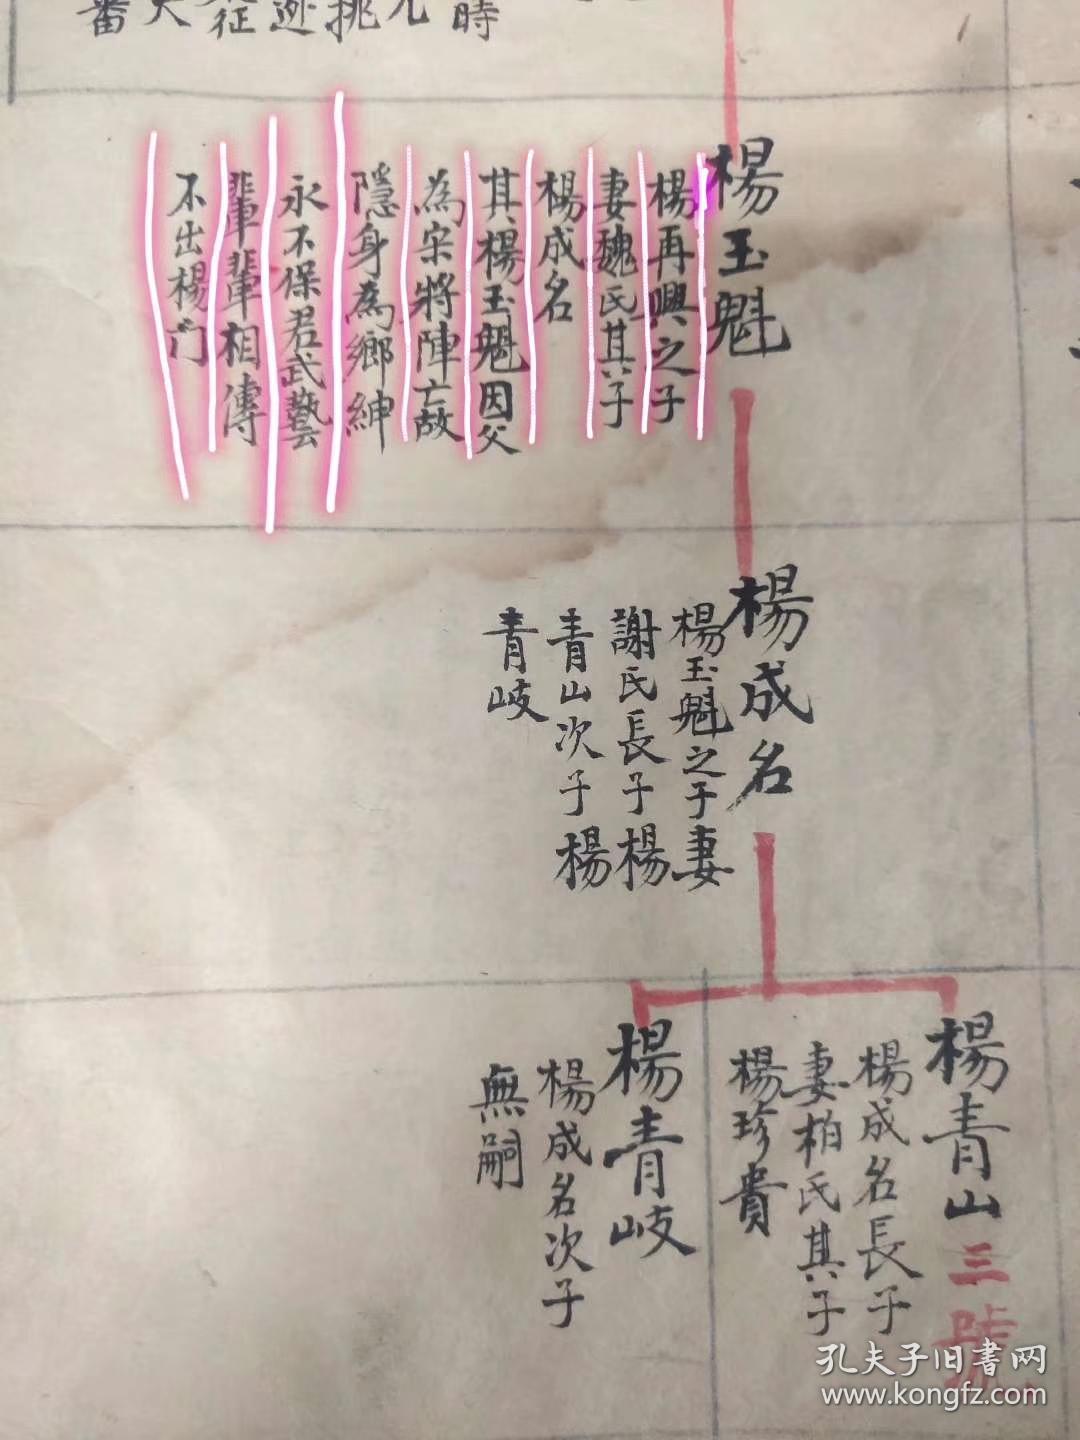 時
兀
挑
逊
征
大
番
楊玉魁
楊再興之子
妻魏氏其子
楊成名
其楊玉魁因父
為宋將陣亡故
隱身為鄉紳
永不保君武藝
輩輩相傳
不出楊門
楊成名
楊玉魁之子妻
謝氏長子楊
青山次子楊
青岐
楊青山三號
楊成名長子
妻柏氏其子
楊珍貴
楊青岐
楊成名次子
無嗣
孔夫子旧書网
www.kongfz.com